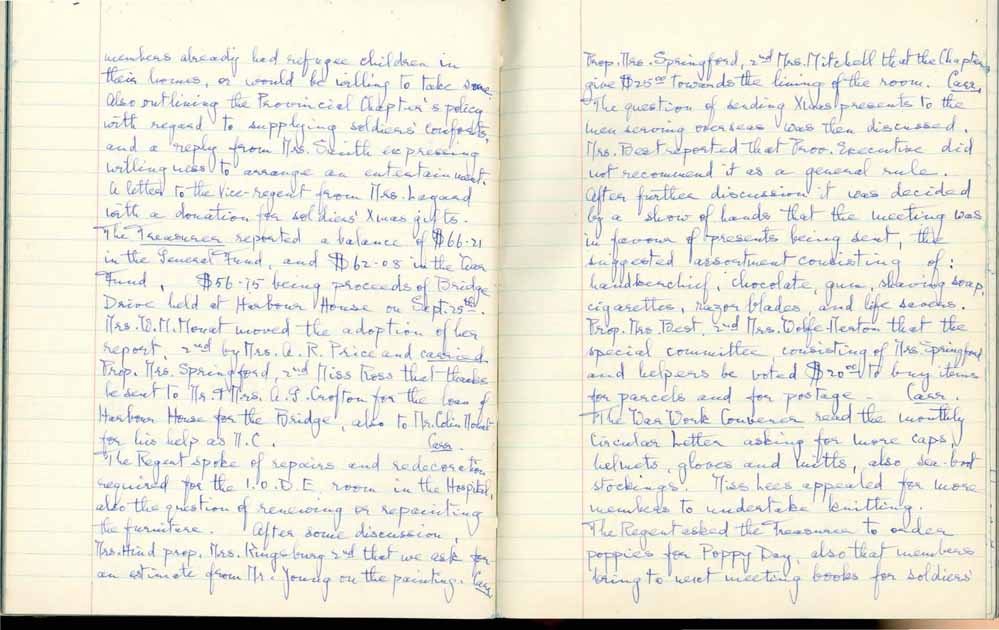 members already had refugee children in
their homes, or would be willing to take some.
Also outlining the Provincial Chapter's policy
with regard to supplying soldiers' comforts,
and a reply from Mrs. Smith expressing
willingness to arrange an entertainment.
A letter to the Vice-regent from Mrs. Layard
with a donation for soldiers' Xmas gifts.
The Treasurer reported a balance of $66.21
in the General Fund, and $62-08 in the War
Fund, $56-75 being proceeds of Bridge
Drive held at Harbour House on Sept. 25th.
Mrs. W.M. Mouat moved the adoption of her
report, 2nd by Mrs. A. R. Price and carried.
Prop. Mrs. Springford, 2nd Miss Fross that thanks
be sent to Mr. & Mrs. A. G. Crofton for the loan of
Harbour House for the Bridge, also to Mr. Colin Mouat
for his help as M.C. Carr.
The Regent spoke of repairs and redecoration
required for the I.O.D.E. room in the Hospital,
also the question of renewing or repainting
the furniture. After some discussion,
Mrs. Hind prop. Mrs. Kingsburg 2nd that we ask for
an estimate from Mr. Young on the painting. Carr.
Prop. Mrs. Springford, 2nd Mrs. Mitchell that the Chapter
give $25.00 towards the lining of the room. Carr.
The question of sending Xmas presents to the
men serving overseas was then discussed.
Mrs. Best reported that Prov. Executive did
not recommend it as a general rule.
After further discussion it was decided
by a show of hands that the meeting was
in favour of presents being sent, the
suggested assortment consisting of:
handkerchief, chocolate, gum, shaving soap,
cigarettes, razor blades, and life savers.
Prop. Mrs. Best, 2nd Mrs. Wolfe-Merton that the
special committee, consisting of Mrs. Springford
and helpers be voted $20.00 to buy items
for parcels and for postage - Carr.
The War Work Convener read the monthly
Circular Letter asking for more caps,
helmets, gloves and mitts, also sea-boot
stockings. Miss Lees appealed for more
members to undertake knitting.
The Regent asked the Treasurer to order
poppies for Poppy Day, also that members
bring to next meeting books for soldiers'